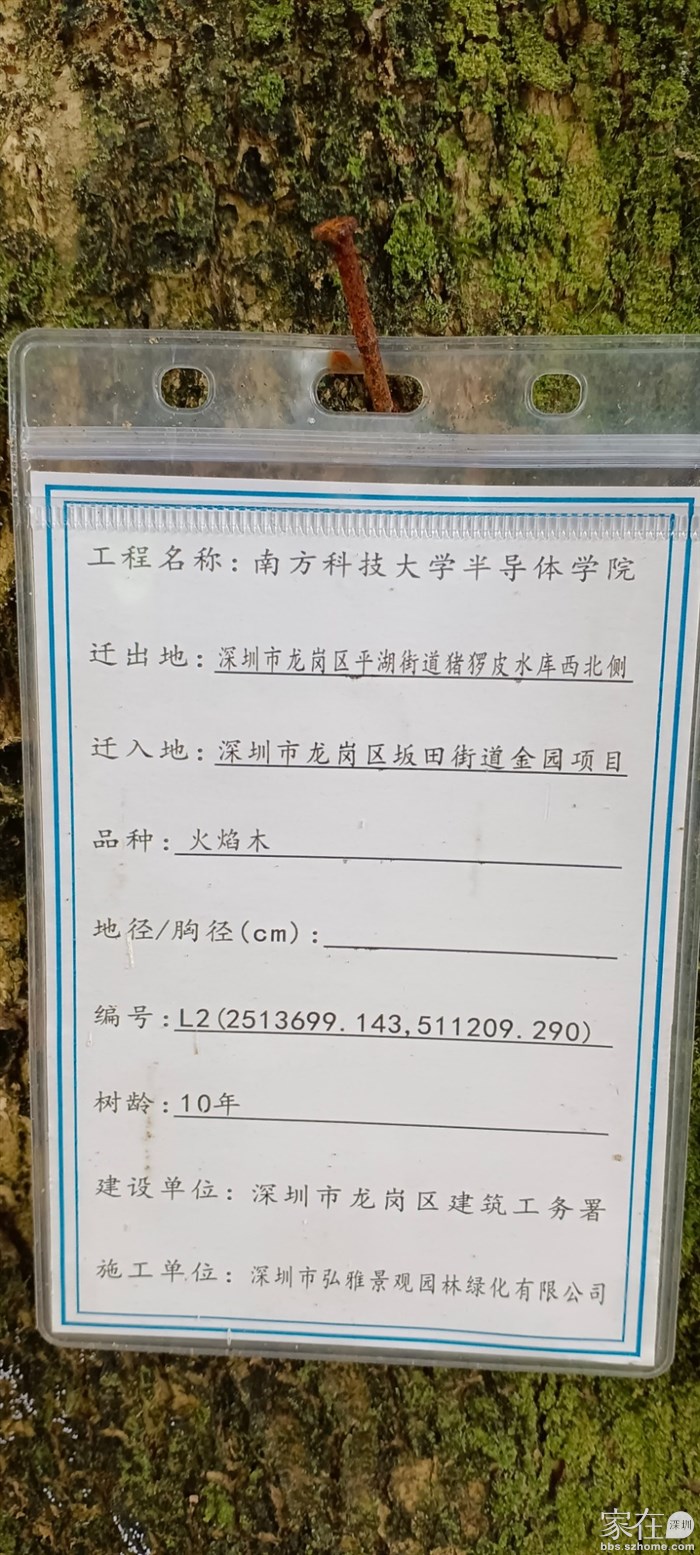 工程名称：南方科技大学半导体学院
迁出地：深圳市龙岗区平湖街道猪猡皮水库西北侧
迁入地：深圳市龙岗区坂田街道金园项目
品种：火焰木
地径/胸径(cm)：
编号：L2(2513699.143,511209.290)
树龄：10年
建设单位：深圳市龙岗区建筑工务署
施工单位：深圳市弘雅景观园林绿化有限公司
家在深圳
bbs.szhome.com